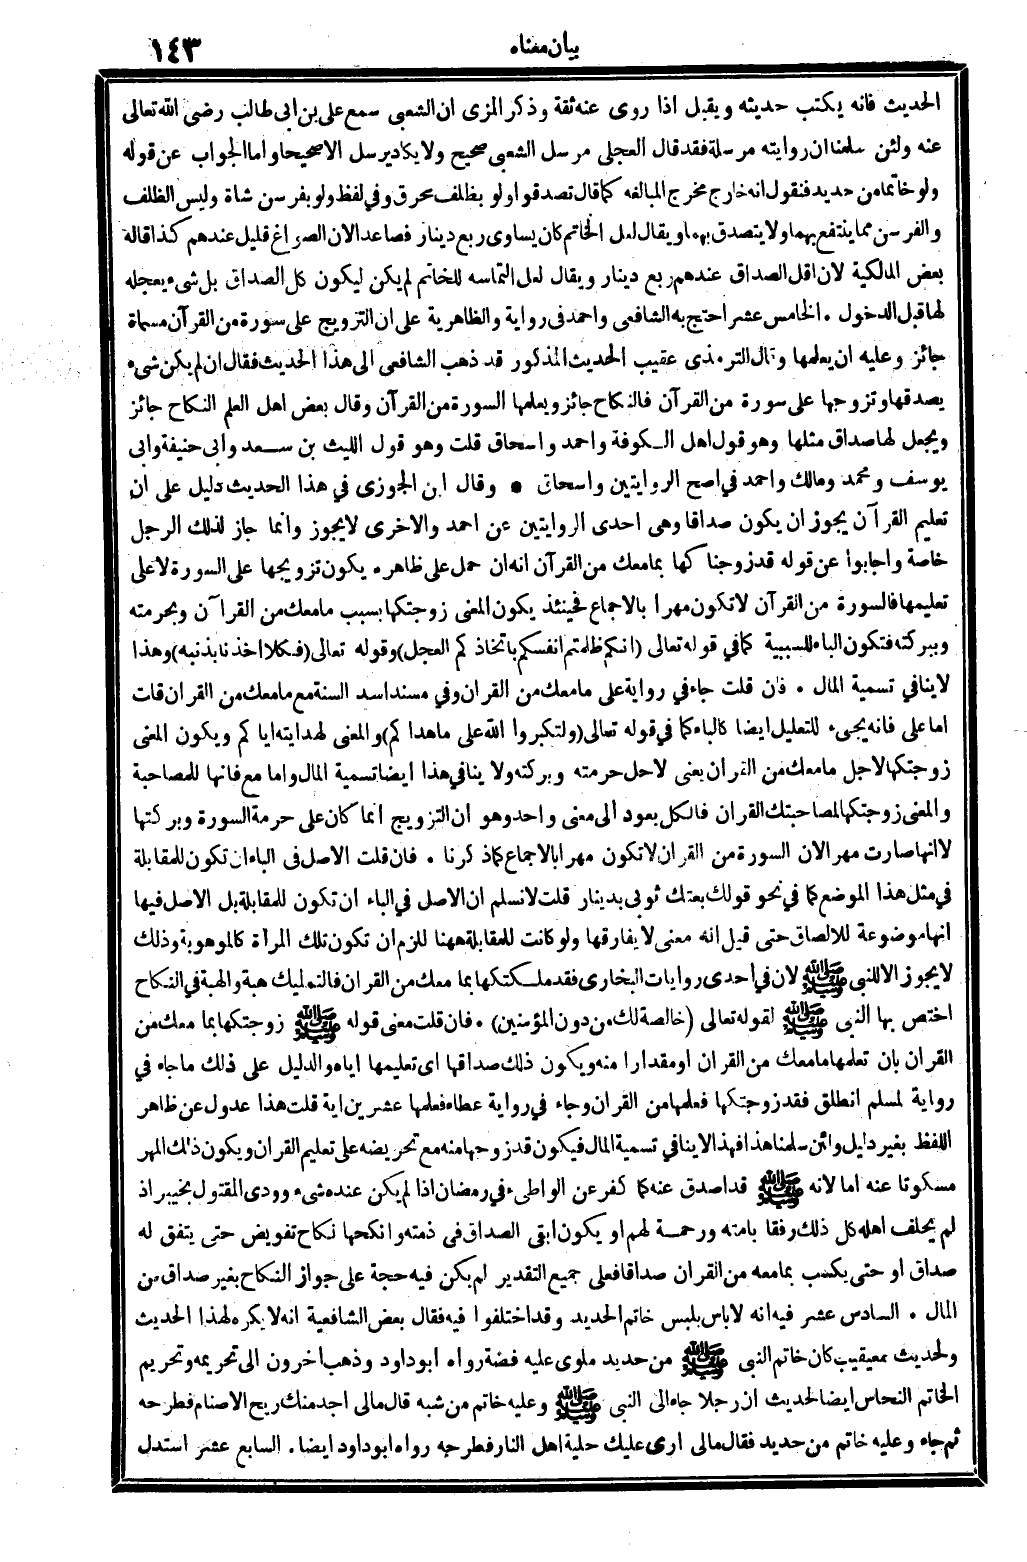 بيان معناه ١٤٣
الحديث فانه يكتب حديثه ويقبل اذا روى عنه ثقة وذكر المزى ان الشعبى سمع على بن ابى طالب رضى الله تعالى
عنه ولئن سلمنا ان روايته مرسلة فقد قال العجلى مرسل الشعبى صحيح ولا يكاد يرسل الا صحيحا واما الجواب عن قوله
ولو خاتما من حديد فنقول انه خارج مخرج المبالغة كما قال تصدقوا ولو بظلف محرق وفي لفظ ولو بفرسن شاة وليس الظلف
والفرسن مما ينتفع بهما ولا يتصدق بهما ويقال لعل الخاتم كان يساوى ربع دينار فصاعدا لان الصواغ قليل عندهم كذا قاله
بعض المالكية لان اقل الصداق عندهم ربع دينار ويقال لعل التماسه للخاتم لم يكن ليكون كل الصداق بل شىء يعجله
لها قبل الدخول . الخامس عشر احتج به الشافعى واحمد فى رواية والظاهرية على ان التزويج على سورة من القرآن مسماة
جائز وعليه ان يعلمها وقال الترمذى عقيب الحديث المذكور قد ذهب الشافعى الى هذا الحديث فقال ان لم يكن شىء
يصدقها وتزوجها على سورة من القرآن فالنكاح جائز ويعلمها السورة من القرآن وقال بعض اهل العلم النكاح جائز
ويجعل لها صداق مثلها وهو قول اهل الكوفة واحمد واسحاق قلت وهو قول الليث بن سعد وابى حنيفة وابى
يوسف ومحمد ومالك واحمد في اصح الروايتين واسحاق • وقال ابن الجوزى في هذا الحديث دليل على ان
تعليم القرآن يجوز ان يكون صداقا وهى احدى الروايتين عن احمد والاخرى لا يجوز وانما جاز لذلك الرجل
خاصة واجابوا عن قوله قد زوجنا كها بما معك من القرآن انه ان حمل على ظاهره يكون تزويجها على السورة لا على
تعليمها فالسورة من القرآن لا تكون مهرا بالاجماع فحينئذ يكون المعنى زوجتكها بسبب ما معك من القرآن وبحرمته
وببركته فتكون الباء للسببية كما في قوله تعالى (انكم ظلمتم انفسكم باتخاذكم العجل) وقوله تعالى (فكلا اخذنا بذنبه) وهذا
لا ينافي تسمية المال . فان قلت جاء في رواية على ما معك من القران وفي مسند اسد السنة مع ما معك من القران قلت
اما على فانه يجىء للتعليل ايضا كالباء كما في قوله تعالى (ولتكبروا الله على ما هدا كم) والمعنى لهدايته ايا كم ويكون المعنى
زوجتكها لاجل ما معك من القران يعنى لاجل حرمته وبركته ولا ينافي هذا ايضا تسمية المال واما مع فانها للمصاحبة
والمعنى زوجتكها لمصاحبتك القران فالكل يعود الى معنى واحد وهو ان التزويج انما كان على حرمة السورة وبركتها
لا انها صارت مهرا لان السورة من القران لا تكون مهرا بالاجماع كما ذكرنا . فان قلت الاصل فى الباء ان تكون للمقابلة
في مثل هذا الموضع كما في نحو قولك بعتك ثوبى بدينار قلت لا نسلم ان الاصل في الباء ان تكون للمقابلة بل الاصل فيها
انها موضوعة للالصاق حتى قيل انه معنى لا يفارقها ولو كانت للمقابلة ههنا للزم ان تكون تلك المرأة كالموهوبة وذلك
لا يجوز الا للنبى ﷺ لان في احدى روايات البخارى فقد ملكتكها بما معك من القران فالتمليك هبة والهبة في النكاح
اختص بها النبى ﷺ لقوله تعالى (خالصة لك من دون المؤمنين) . فان قلت معنى قوله ﷺ زوجتكها بما معك من
القران بان تعلمها ما معك من القران او مقدارا منه ويكون ذلك صداقها اى تعليمها اياه والدليل على ذلك ما جاء في
رواية لمسلم انطلق فقد زوجتكها فعلمها من القران وجاء في رواية عطاء فعلمها عشرين اية قلت هذا عدول عن ظاهر
اللفظ بغير دليل ولئن سلمنا هذا فهذا لا ينافي تسمية المال فيكون قد زوجها منه مع تحريضه على تعليم القران ويكون ذلك المهر
مسكوتا عنه اما لانه ﷺ قد اصدق عنه كما كفر عن الواطىء في رمضان اذا لم يكن عنده شىء وودى المقتول بخيبر اذ
لم يحلف اهله كل ذلك رفقا بامته ورحمة لهم او يكون ابقى الصداق فى ذمته وانكحها نكاح تفويض حتى يتفق له
صداق او حتى يكسب بما معه من القران صداقا فعلى جميع التقدير لم يكن فيه حجة على جواز النكاح بغير صداق من
المال . السادس عشر فيه انه لا باس بلبس خاتم الحديد وقد اختلفوا فيه فقال بعض الشافعية انه لا يكره لهذا الحديث
ولحديث معيقيب كان خاتم النبى ﷺ من حديد ملوى عليه فضة رواه ابو داود وذهب اخرون الى تحريمه وتحريم
الخاتم النحاس ايضا لحديث ان رجلا جاء الى النبى ﷺ وعليه خاتم من شبه قال مالى اجد منك ريح الاصنام فطرحه
ثم جاء وعليه خاتم من حديد فقال مالى ارى عليك حلية اهل النار فطرحه رواه ابو داود ايضا . السابع عشر استدل